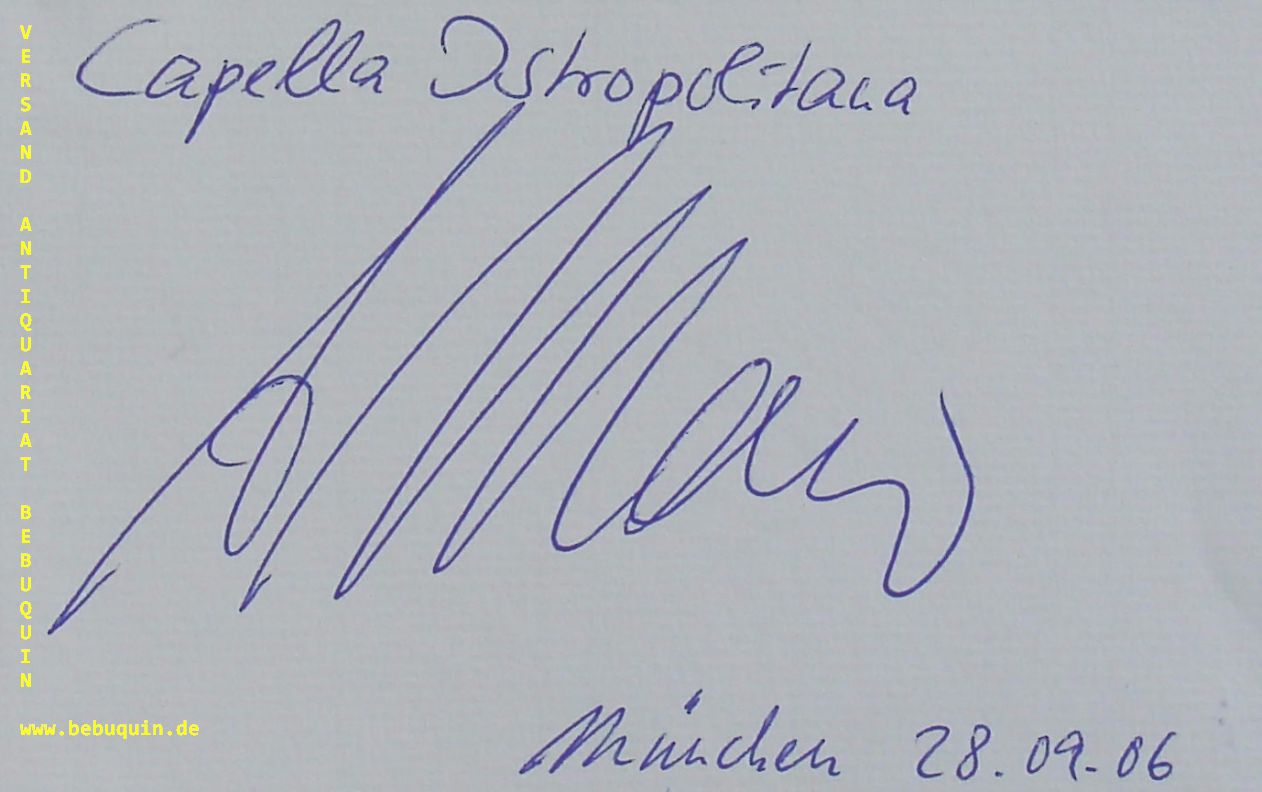 VERSAND ANTIQUARIAT BEBUQUIN
www.bebuquin.de
Capella Istropolitana
München 28.09.06